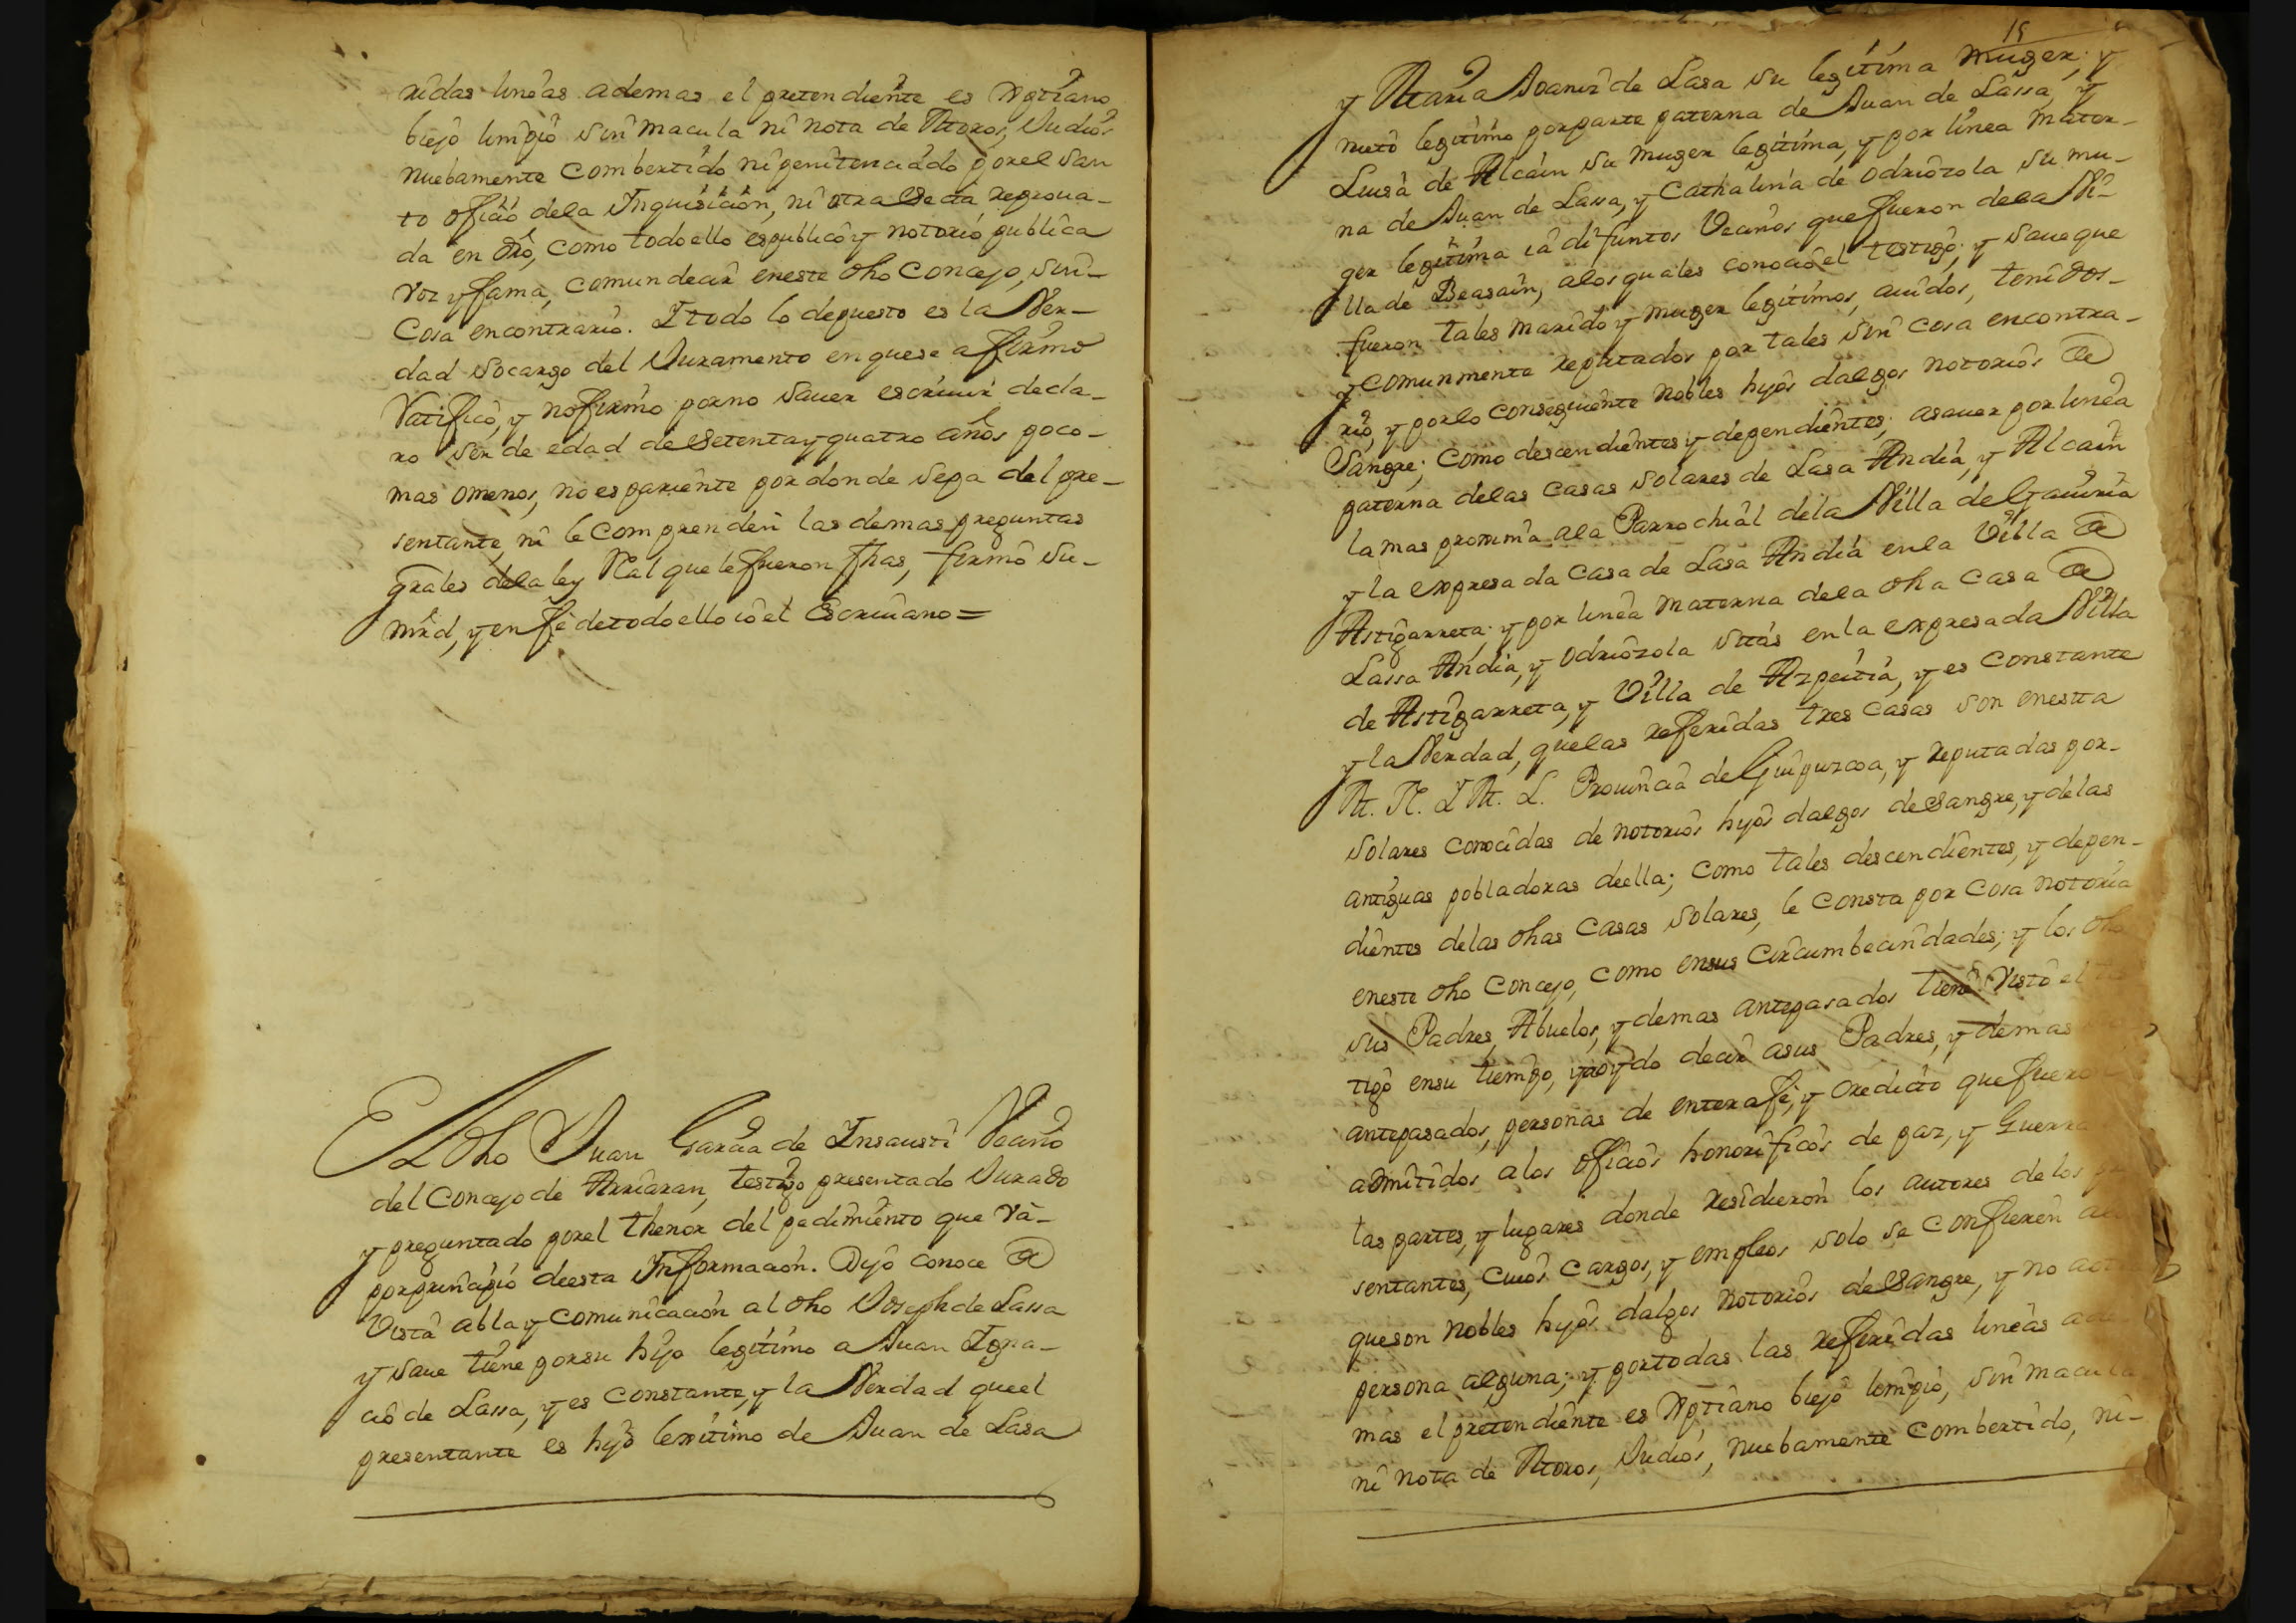 ridas lineas ademas el pretendiente es Xptiano
biejo limpio sin macula ni nota de Moros, Judios
nuebamente combertido ni penitenciado por el San
to oficio de la Inquisicion, ni otra secta reproua-
da en dro, como todo ello es publico y notorio publica
voz y fama, comun decir en este dho Concejo, sin-
Cosa en contrario. I todo lo depuesto es la Ver-
dad so cargo del Juramento en que se afirmo
Ratifico, y no firmo por no sauer escriuir decla-
ro ser de edad de setenta y quatro años poco-
mas o menos, no es pariente por donde sepa del pre-
sentante, ni le comprenden las demas preguntas
grales de la ley Real que le fueron fhas, firmo su-
mrd, y en fe de todo ello io el Escriuano =
El dho Juan Garcia de Insausti Vecino
del Concejo de Arriaran, testigo presentado Jurado
y preguntado por el thenor del pedimiento que va-
por principio de esta Informacion. Dijo conoce de
Vista abla y comunicacion al dho Joseph de Lassa
y saue tiene por su hijo legitimo a Juan Igna-
cio de Lassa, y es constante, y la Verdad que el
presentante es hijo lexitimo de Juan de Lasa
15
y Maria Joaniz de Lasa su legitima muger; y
nieto legitimo por parte paterna de Juan de Lassa, y
Luisa de Alcain su muger legitima, y por linea mater-
na de Juan de Lassa, y Cathalina de Odriozola su mu-
ger legitima ia difuntos Vecinos que fueron de la Vi-
lla de Beasain, a los quales conocio el testigo; y saue que
fueron tales marido y muger legitimos, auidos, tenidos-
y comunmente reputados por tales sin cosa en contra-
rio, y por lo conseguiente nobles hijos dalgos notorios de
Sangre; como descendientes y dependientes; asauer por linea
paterna de las casas solares de Lasa Andia, y Alcain
la mas proxima a la Parrochial de la Villa de Gauiria
y la expresada casa de Lasa Andia en la Villa de
Astigarreta; y por linea materna de la dha casa de
Lassa Andia, y Odriozola sittas en la expresada Villa
de Astigarreta, y Villa de Azpeitia, y es constante
y la Verdad, que las referidas tres casas son en estta
M. N. I M. L. Prouincia de Guipuzcoa, y reputadas por-
solares conocidas de notorios hijos dalgos de sangre, y de las
antiguas pobladoras de ella; como tales descendientes, y depen-
dientes de las dhas casas solares, le consta por cosa notoria
en este dho Concejo, como en sus circumbecindades; y los dho
sus Padres, Abuelos, y demas antepasados tiene visto el
tigo en su tiempo, y oydo decir a sus Padres, y demas
antepasados, personas de entera fe, y credicto que fuero
admitidos a los oficios honorificos de paz, y Guerra
las partes, y lugares donde residieron los autores de los
sentantes, cuios cargos, y empleos solo se confieren
que son nobles hijos dalgos notorios de sangre, y no
persona alguna; y por todas las referidas lineas
mas el pretendiente es Xptiano biejo limpio, sin macula
ni nota de Moros, Judios, nuebamente combertido, ni-